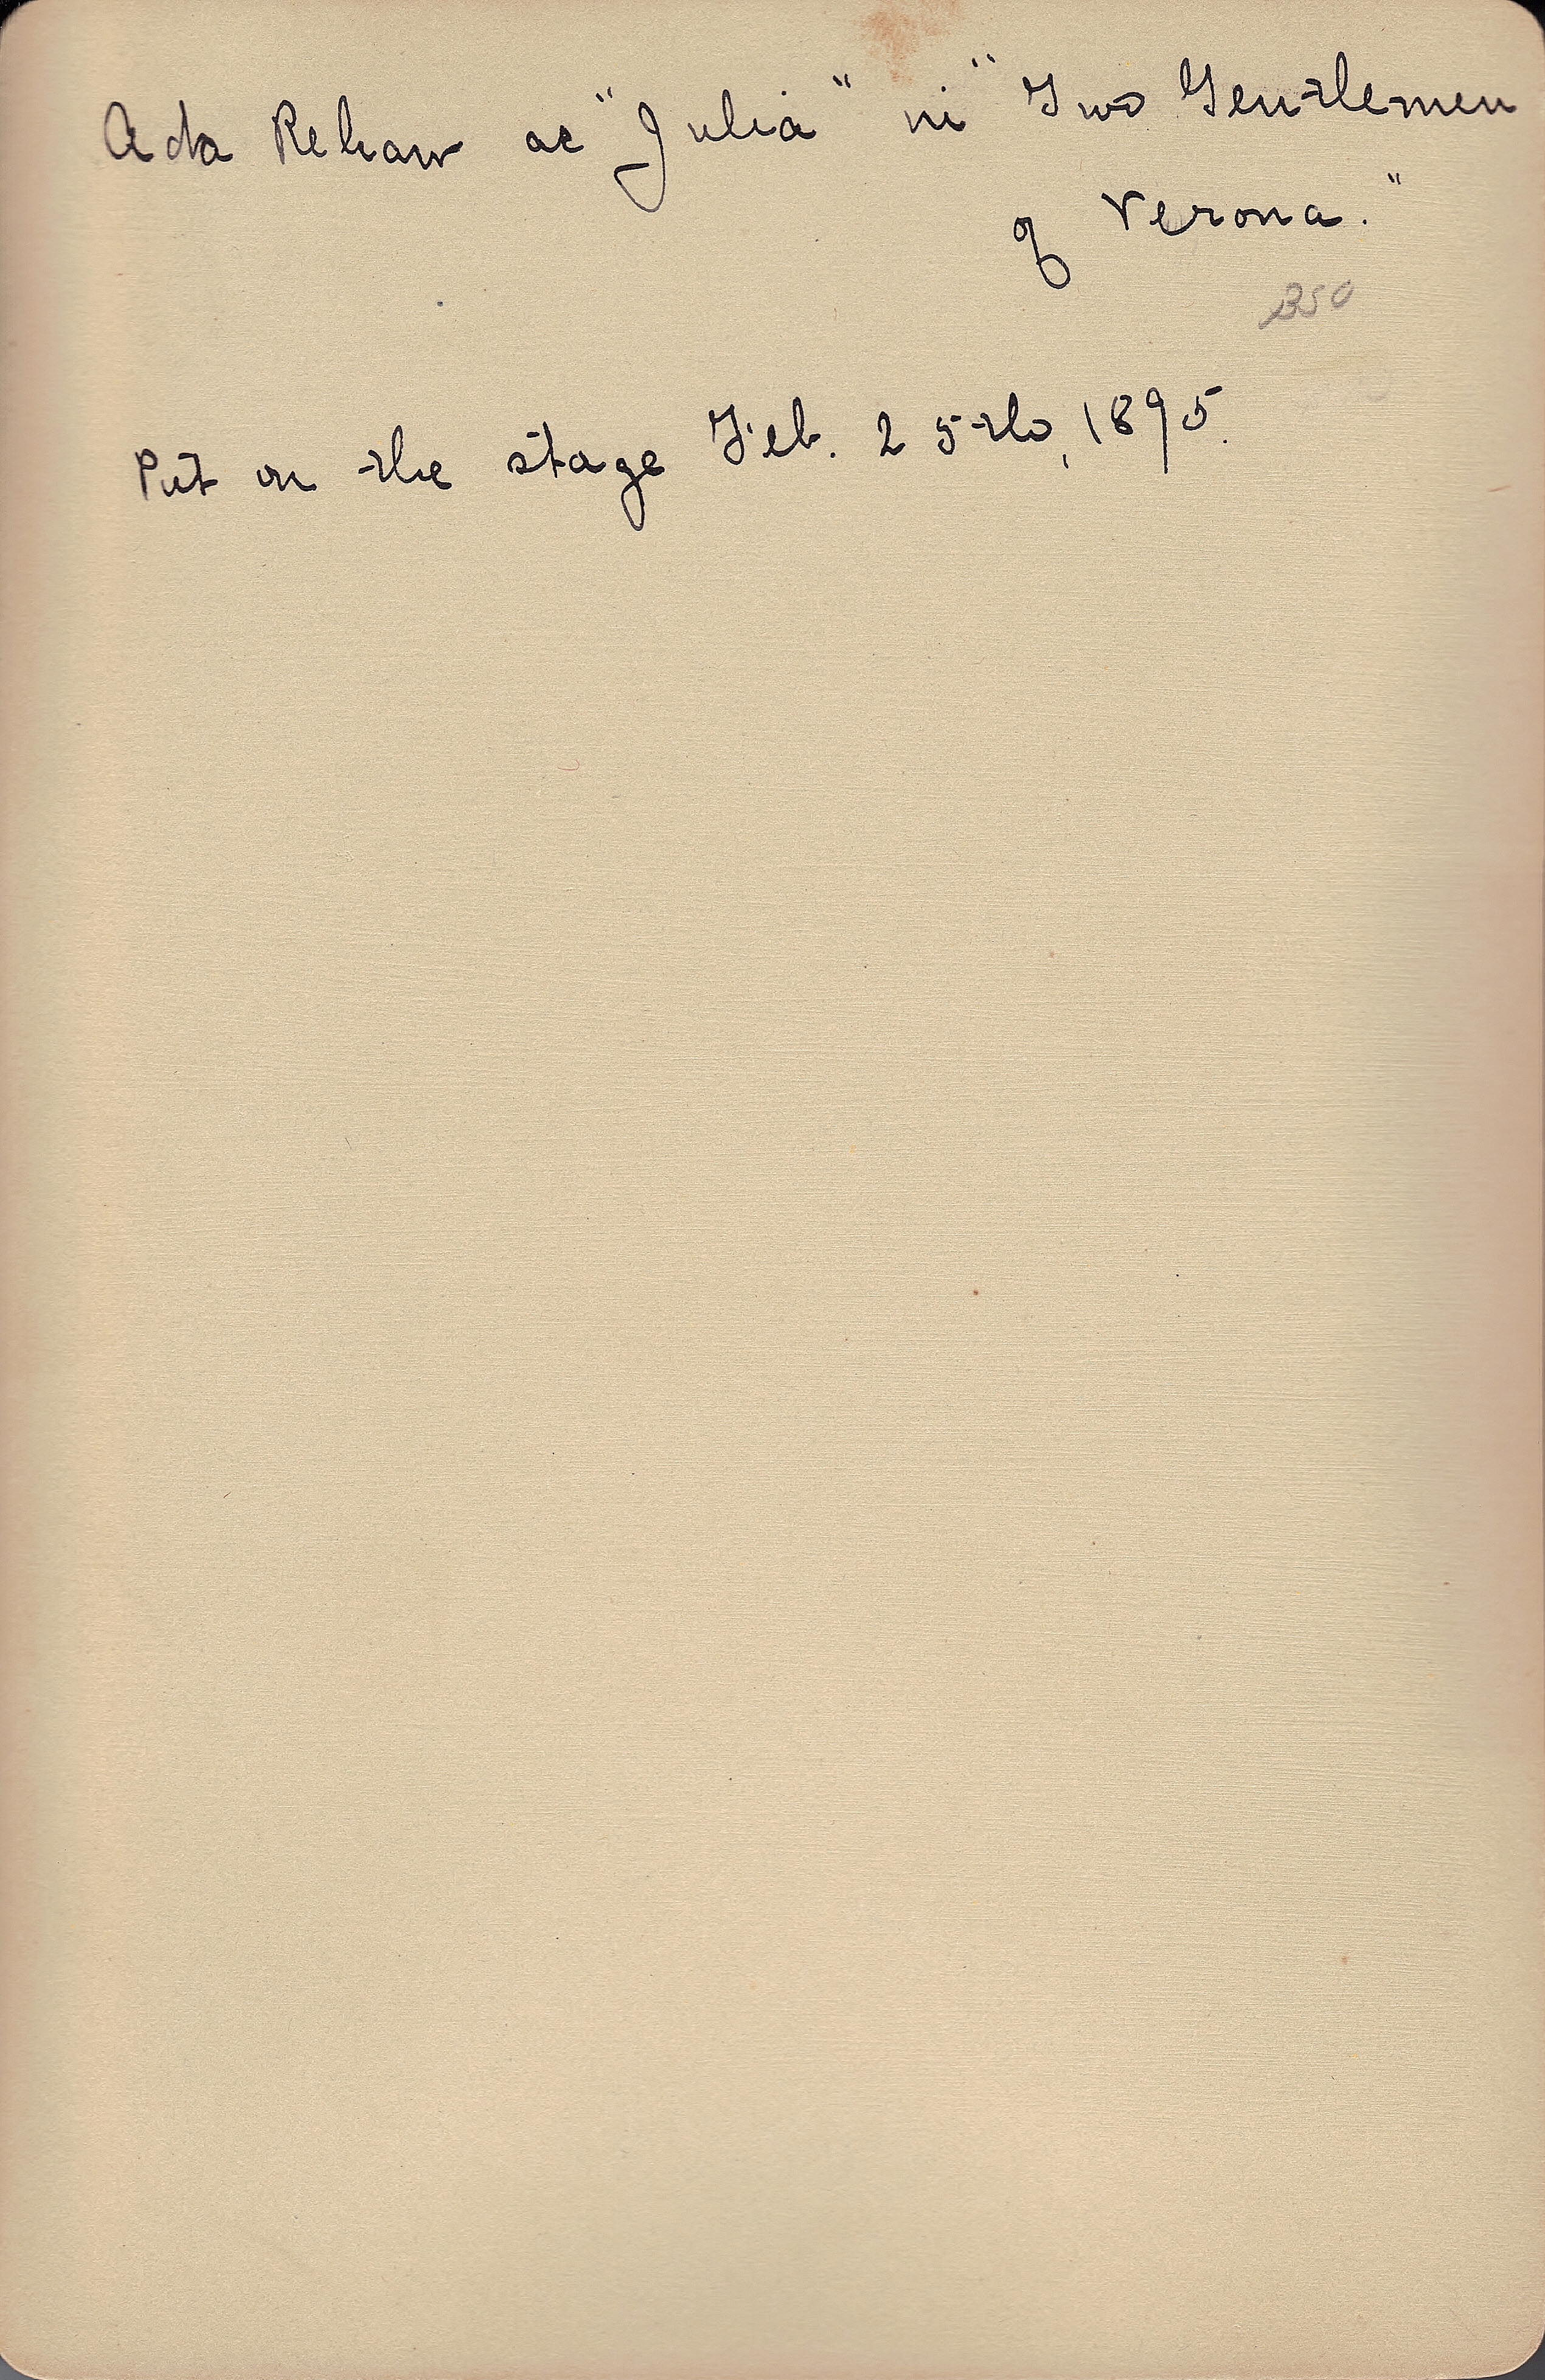 Ada Rehan as "Julia" in "Two Gentlemen
of Verona."
350
Put on the stage Feb. 25th, 1895.